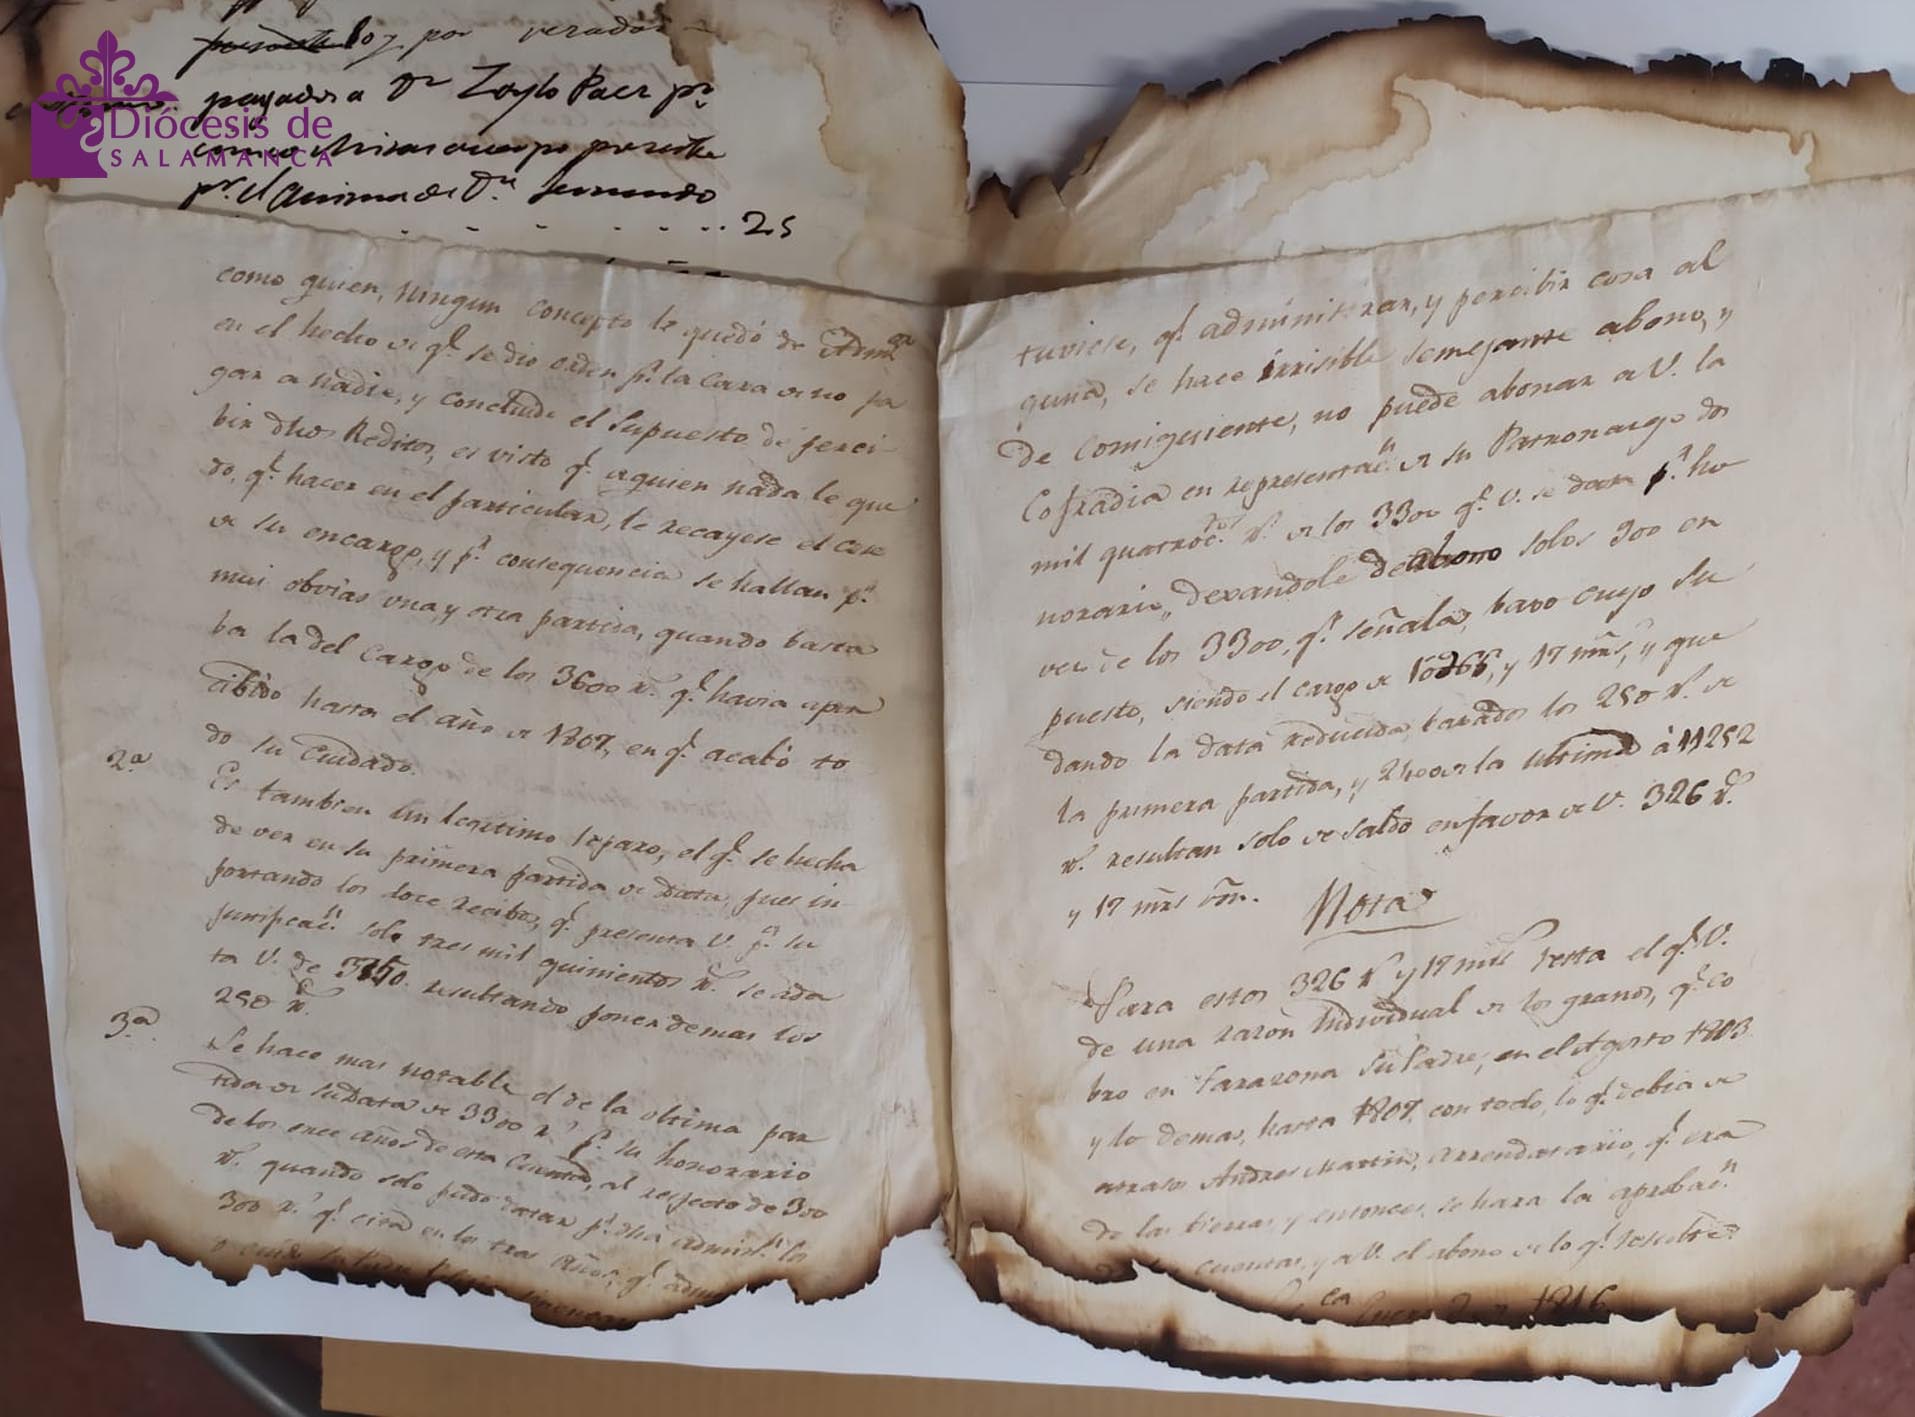 Diócesis de
SALAMANCA
por
pagados a Dn Zoylo Paez pr
cinco Misas cuerpo presente
pr. el Anima de Dn.
25
como quien, ningun concepto le quedó de Admor
en el hecho de q.e se dio orden p.a la Casa de no pa
gar a nadie, y concluide el supuesto de perci-
bir dhos Reditos, es visto q.e a quien nada le que
do, q.e hacer en el particular, le recayese el cese
de su encargo, y p.r consequencia se hallan p.r
mui obvias una, y otra partida, quando basta
ba la del cargo de los 3600 r.s q.e havia aper
cibido hasta el año de 1807, en q.e acabó to
do su cuidado.
2.a
Es tambien un legitimo reparo, el q.e se hecha
de ver en su primera partida de Data, pues im
portando los doce recibos, q.e presenta V. p.a su
justificac.n solo tres mil quinientos r.s se ada
ta V. de 3750. resultando poner demas los
250 r.s
3.a
Se hace mas notable el de la ultima par
tida de su Data de 3300 r.s p.r su honorario
de los once años de esta Cuenta, al respecto de 300
r.s quando solo pudo datar p.r dha admin.n los
300 r.s q.e cita en los tres Años, q.e
tuviese, q.e administrar, y percibir cosa al
guna, se hace irrisible semejante abono, y
de consiguiente, no puede abonar a V. la
Cofradia en representac.n de su Patronazgo dos
mil quatroc.tos r.s de los 3300 q.e V. se data p.r ho
norario, dexandole de abono solos 900 en
vez de los 3300, q.e señala, baxo cuyo su
puesto, siendo el cargo de 10966, y 17 mrs, y que
dando la data reducida, baxados los 250 r.s de
la primera partida, y 2400 de la ultima à 11252
r.s resultan solo de saldo en favor de V. 326 r.s
y 17 mrs vn.
Nota
Para estos 326 r.s y 17 mrs resta el q.e V.
de una razon individual de los granos, q.e co
bro en Tarazona su Padre, en el Agosto 1803
y lo demas, hasta 1807, con todo, lo q.e debia de
atrasos Andres Martin, Arrendatario, q.e era
de las tierras y entonces se hara la aprobac.n
cuentas, y a V. el abono de lo q.e resulte
Enero 2 de 1816